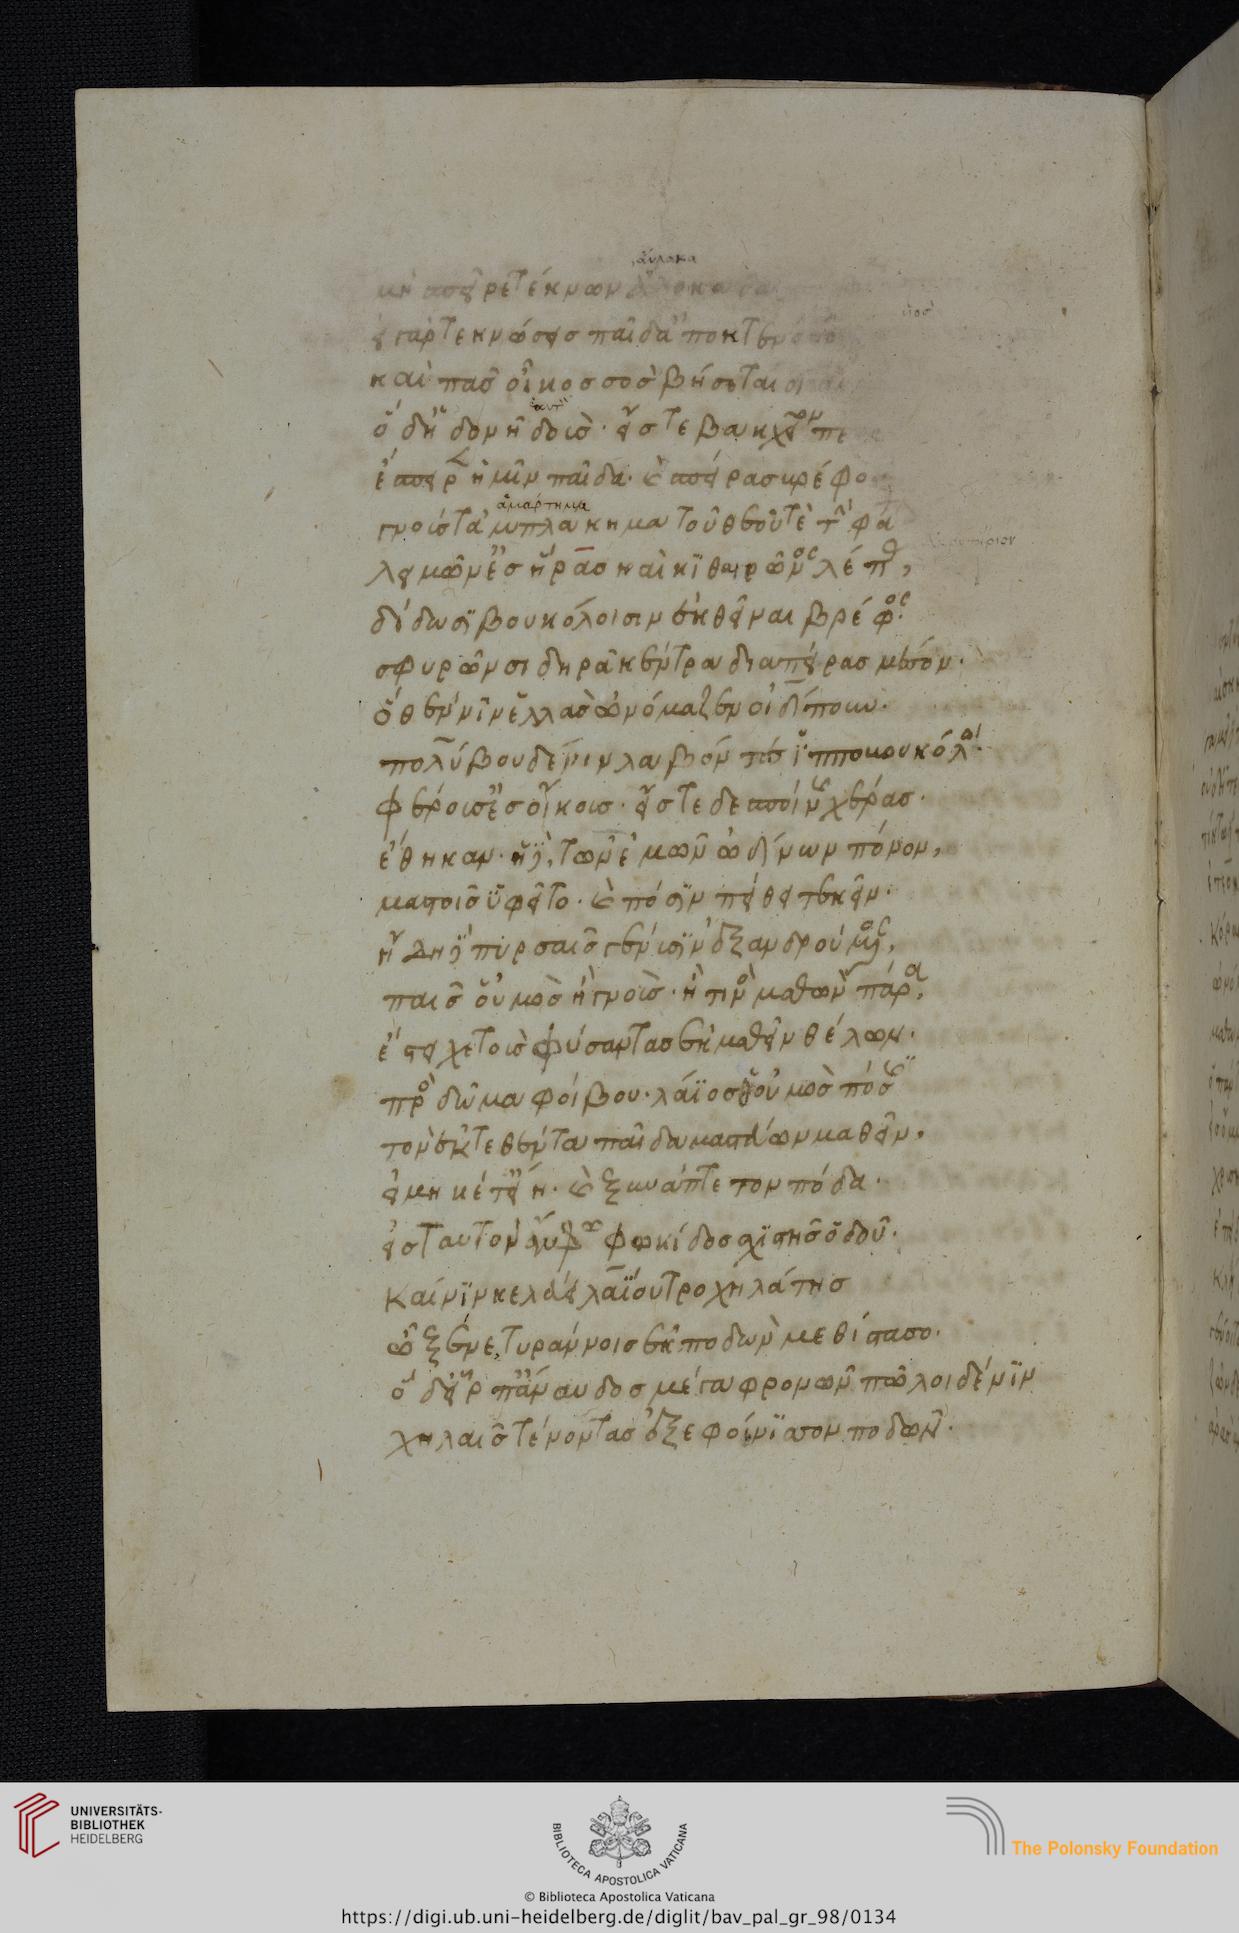 αὔλακα
μὴ σπεῖρε τέκνων ἄλοκα
εἰ γὰρ τεκνώσεις παῖδ' ἀποκτενεῖ
καὶ πᾶς οἶκος σὸς βήσεται
ὁ δ' ἡδονῇ δοὺς· εἴς τε βακχεῖον πε
ἔσπειρεν ἡμῖν παῖδα· καὶ σπείρας βρέφο
ἁμάρτημα
γνοὺς τἀμπλάκημα τοῦ θεοῦ τε τὴν φά
λειμῶν' ἐς ἥρας καὶ κιθαιρῶνος λέπας,
δίδωσι βουκόλοισιν ἐκθεῖναι βρέφος·
σφυρῶν σιδηρᾶ κέντρα διαπείρας μέσον·
ὅθεν νιν ἑλλὰς ὠνόμαζεν οἰδίπουν·
πολύβου δέ νιν λαβόντες ἱπποβουκόλοι·
φέρουσ' ἐς οἴκους· εἴς τε δεσποίνης χέρας·
ἔθηκαν· ἡ δὲ, τὸν ἐμὸν ὠδίνων πόνον,
μαστοῖς ὑφεῖτο· καὶ πόσιν πείθει τεκεῖν·
ἤδη δὲ πυρσαῖς γένυσιν ἐξανδρούμενος,
παῖς οὑμὸς ἢ γνοὺς· ἤ τινος μαθὼν πάρα,
ἔστειχε τοὺς φύσαντας ἐκμαθεῖν θέλων·
πρὸς δῶμα φοίβου· λάϊος θ' οὑμὸς πόσις
τὸν ἐκτεθέντα παῖδα μαστεύων μαθεῖν·
εἰ μηκέτ' εἴη· καὶ ξυνάπτετον πόδα·
εἰς ταυτὸν ἄμφω φωκίδος σχιστῆς ὁδοῦ·
καί νιν κελεύει λαΐου τροχηλάτης
ὦ ξένε, τυράννοις ἐκποδὼν μεθίστασο·
ὁ δ' εἷρπ' ἄναυδος μέγα φρονῶν πῶλοι δέ νιν
χηλαῖς τένοντας ἐξεφοίνισσον ποδῶν·
UNIVERSITÄTS-
BIBLIOTHEK
HEIDELBERG
BIBLIOTECA APOSTOLICA VATICANA
The Polonsky Foundation
© Biblioteca Apostolica Vaticana
https://digi.ub.uni-heidelberg.de/diglit/bav_pal_gr_98/0134